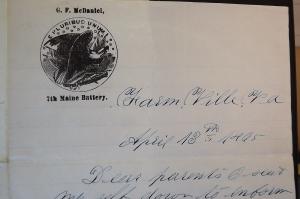 G. F. McDaniel,
E PLURIBUS UNUM
7th Maine Battery.
Farm Ville, Va
April 13th 1865
Dear parents I seat
my self down to inform